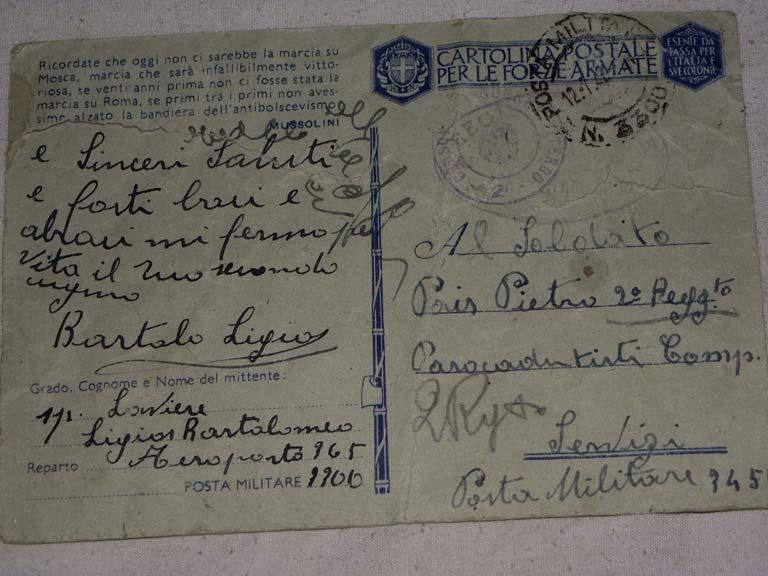 Ricordate che oggi non ci sarebbe la marcia su
Mosca, marcia che sarà infallibilmente vitto-
riosa, se venti anni prima non ci fosse stata la
marcia su Roma, se primi tra i primi non aves-
simo alzato la bandiera dell'antibolscevismo
MUSSOLINI
e Sinceri Saluti
e forti baci e
abraci mi fermo per
vita il tuo secondo
cugino
Bartolo Ligios
Grado, Cognome e Nome del mittente:
Aviere
Ligios Bartolomeo
Reparto Aeroporto 965
POSTA MILITARE 3300
CARTOLINA POSTALE
PER LE FORZE ARMATE
ESENTE DA
TASSA PER
L'ITALIA E
SUE COLONIE
POSTA MILITARE
N. 3300
Al Soldato
Pais Pietro 2º Regg.to
Paracadutisti Comp.
Servizi
Posta Militare 345